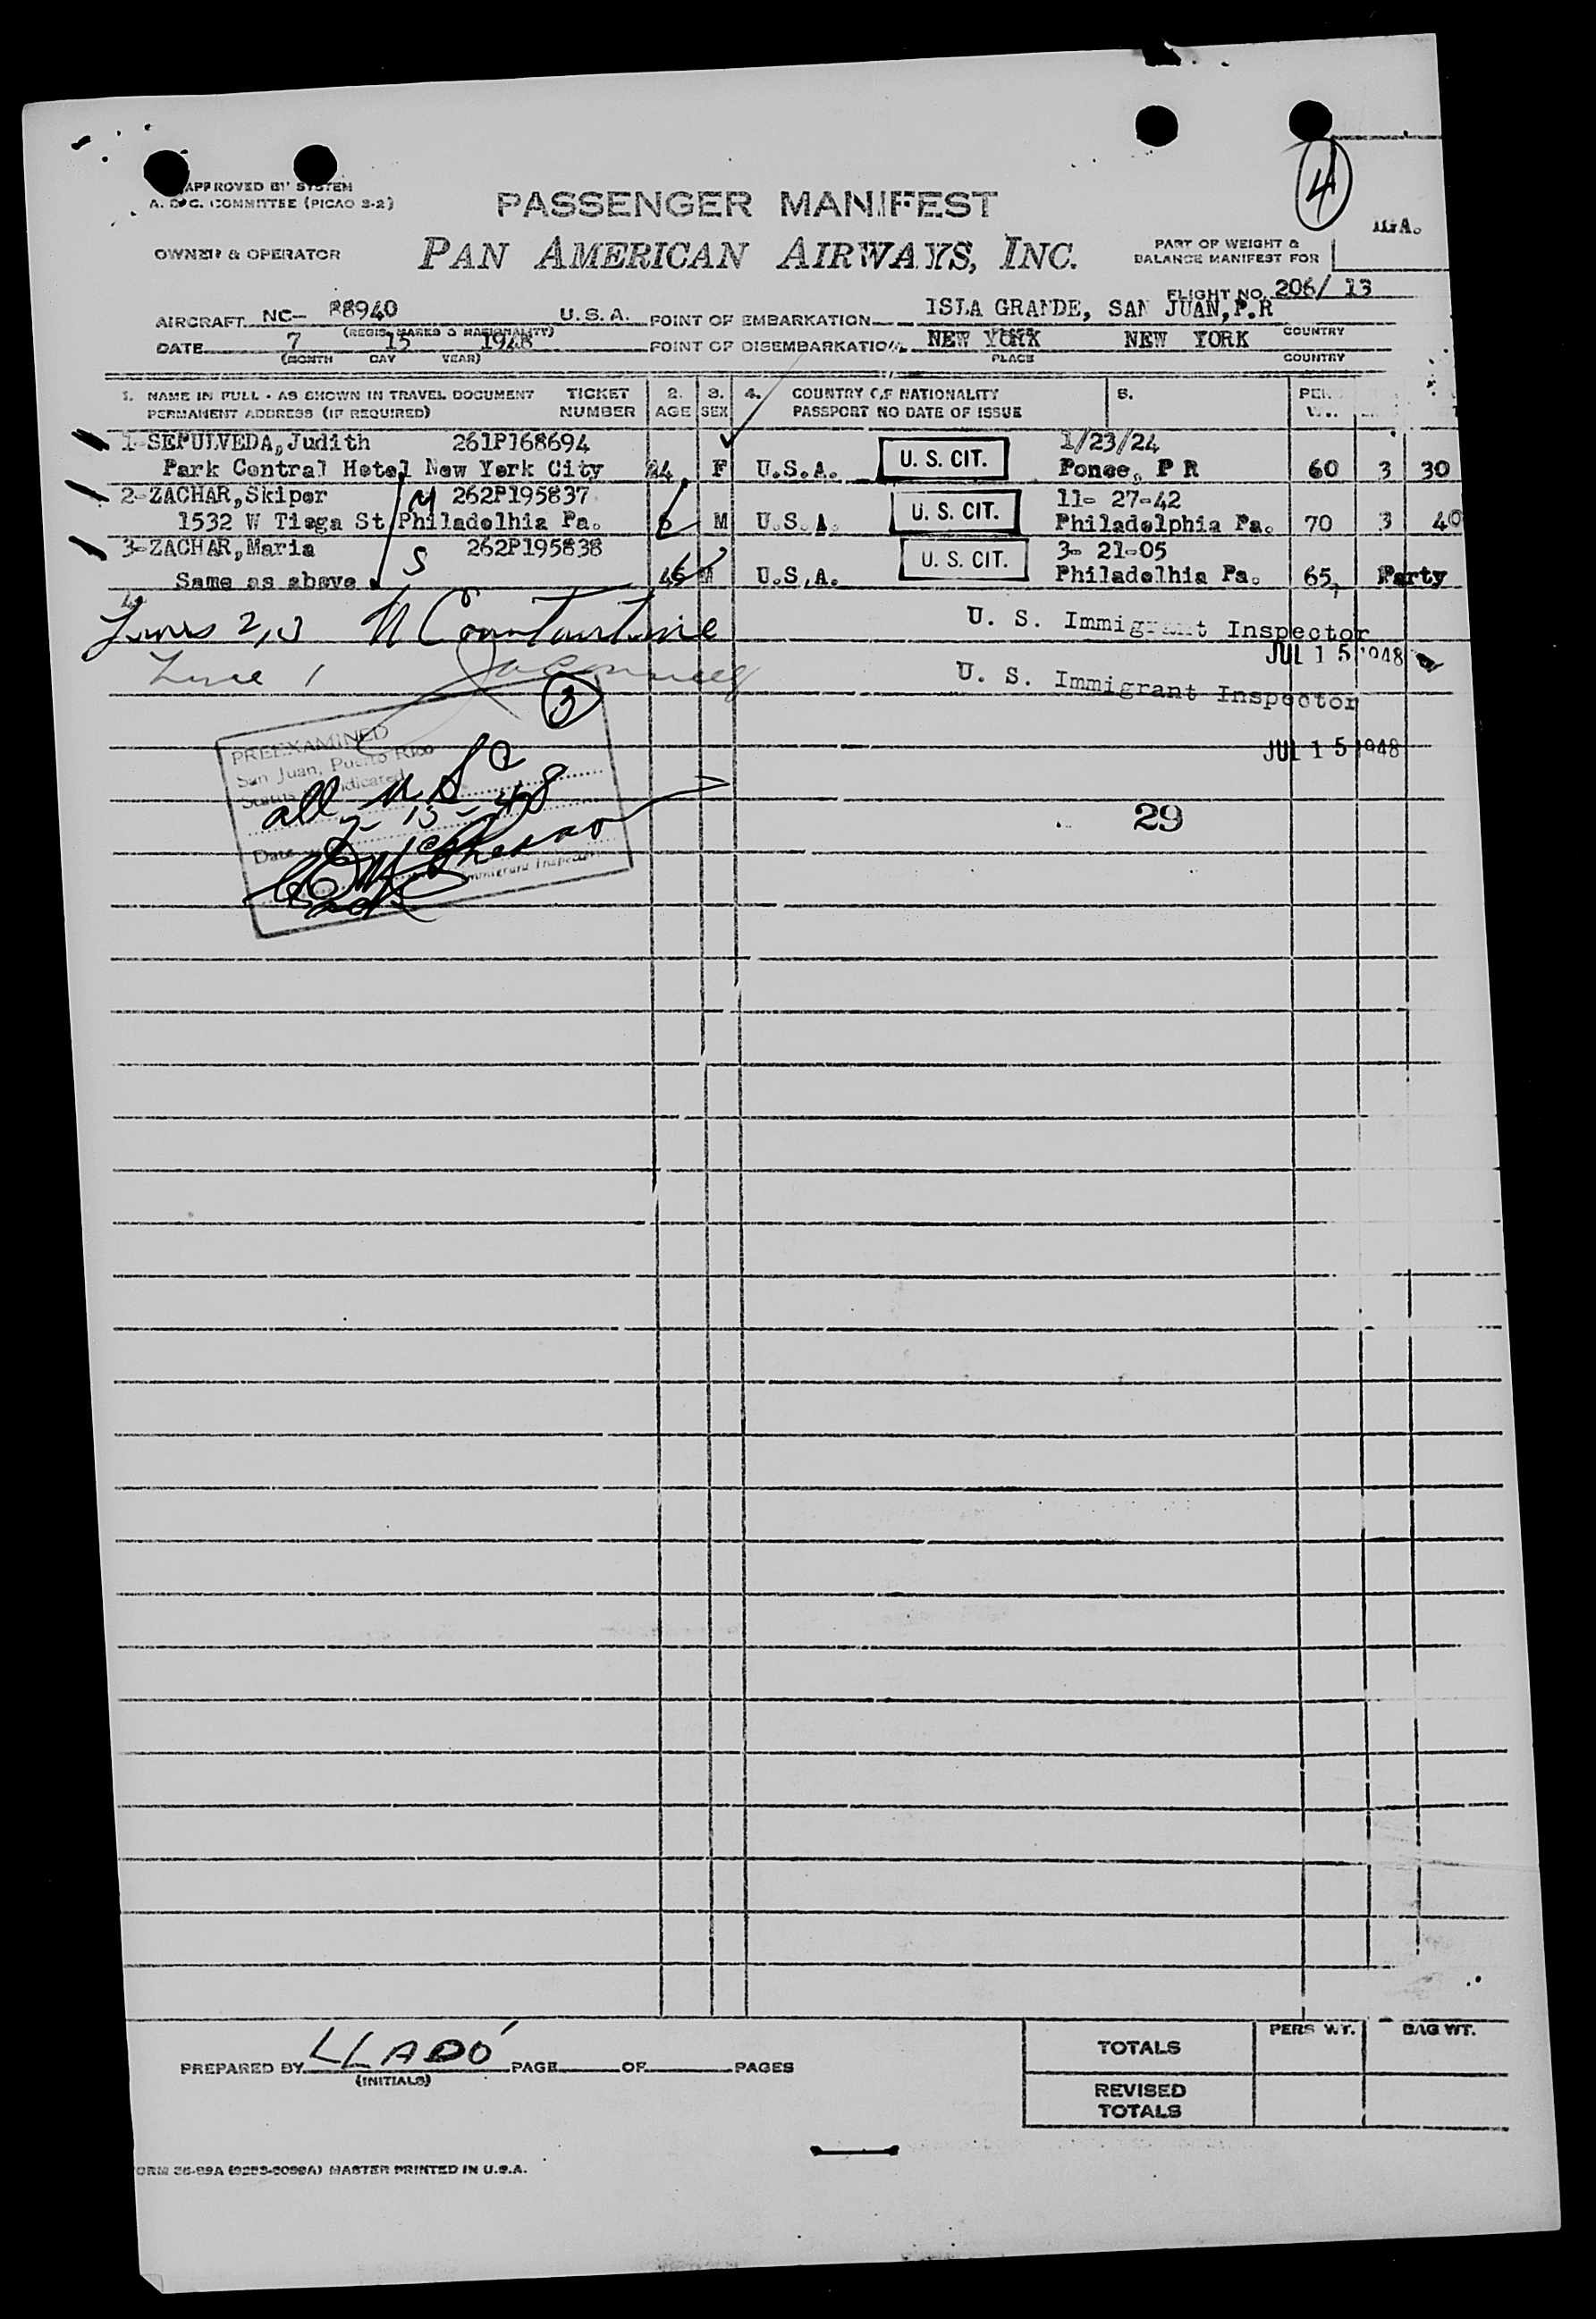 4
APPROVED BY SYSTEM
A. O. C. COMMITTEE (PICAO S-2)
PASSENGER MANIFEST
OWNER & OPERATOR
PAN AMERICAN AIRWAYS, INC.
PART OF WEIGHT &
BALANCE MANIFEST FOR
FLIGHT NO. 206/ 13
AIRCRAFT NC- 88940 U.S.A. POINT OF EMBARKATION ISLA GRANDE, SAN JUAN, P.R
(REGIS. MARKS & NATIONALITY) COUNTRY
DATE 7 15 1948 POINT OF DISEMBARKATION NEW YORK NEW YORK
(MONTH DAY YEAR) PLACE COUNTRY
1. NAME IN FULL - AS SHOWN IN TRAVEL DOCUMENT TICKET 2. 3. 4. COUNTRY OF NATIONALITY 5.
PERMANENT ADDRESS (IF REQUIRED) NUMBER AGE SEX PASSPORT NO DATE OF ISSUE
1-SEPULVEDA, Judith 261P168694 1/23/24
Park Central Hotel New York City 24 F U.S.A. U. S. CIT. Ponce, P R 60 3 30
2-ZACHAR, Skiper M 262P195837 11- 27-42
1532 W Tioga St Philadelhia Pa. M U.S.A. U. S. CIT. Philadelphia Pa. 70 3 40
3-ZACHAR, Maria S 262P195838 3- 21-05
Same as above U.S.A. U. S. CIT. Philadelhia Pa. 65, Party
4
Lines 2, 3 U. S. Immigrant Inspector
JUL 15 1948
Line 1 U. S. Immigrant Inspector
3
JUL 15 1948
PREEXAMINED
San Juan, Puerto Rico
Status Indicated
all U.S.C
Date 7-15-48
Immigrant Inspector
29
PREPARED BY LLADÓ PAGE OF PAGES
(INITIALS)
PERS WT. BAG WT.
TOTALS
REVISED
TOTALS
FORM 36-99A (9253-5099A) MASTER PRINTED IN U.S.A.